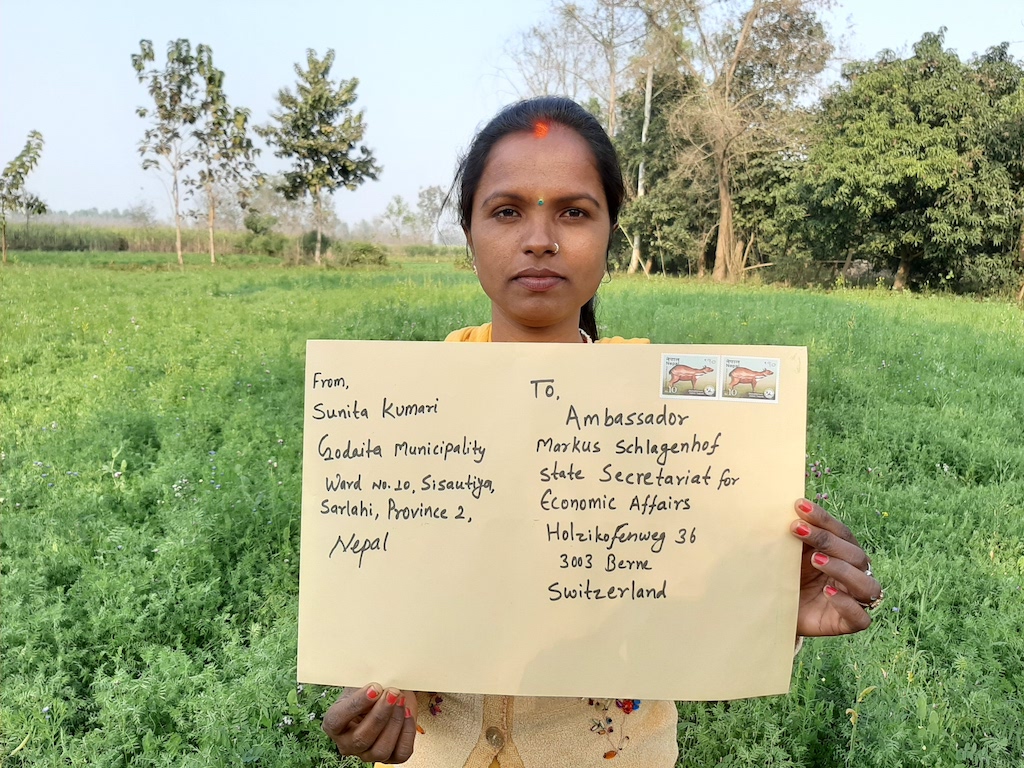 From,
Sunita Kumari
Godaita Municipality
Ward No. 10, Sisautiya,
Sarlahi, Province 2,
Nepal
To,
Ambassador
Markus Schlagenhof
State Secretariat for
Economic Affairs
Holzikofenweg 36
3003 Berne
Switzerland
नेपाल
10
नेपाल
10